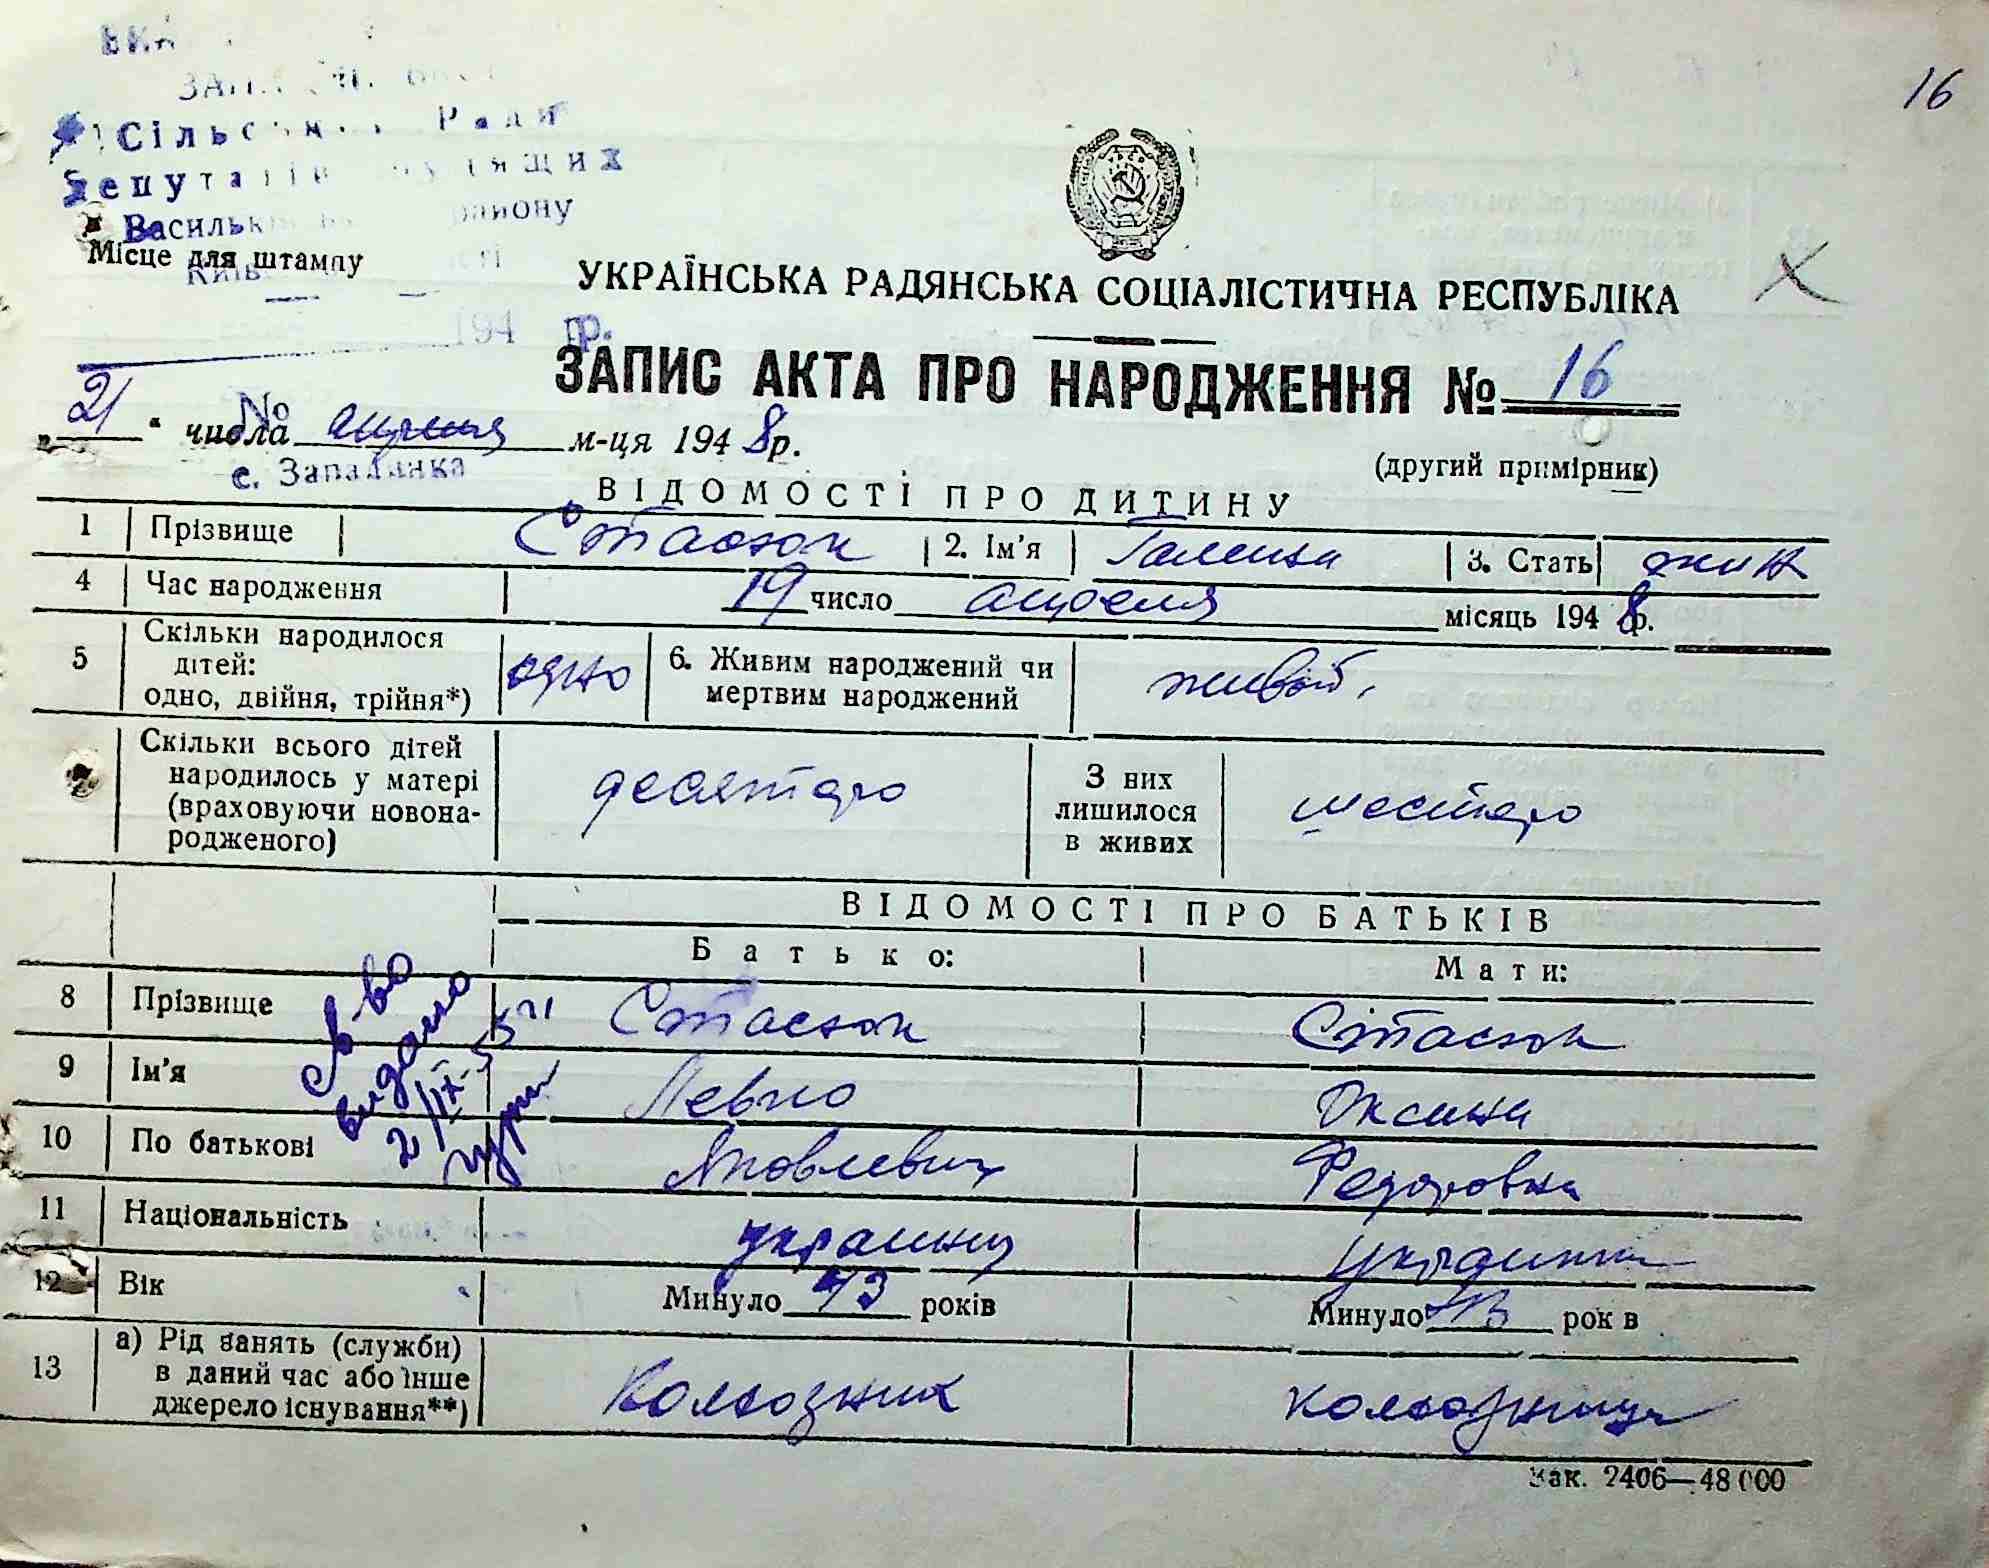 16
Сільської Ради
Депутатів трудящих
Васильківського району
Місце для штампу
194 р.
УКРАЇНСЬКА РАДЯНСЬКА СОЦІАЛІСТИЧНА РЕСПУБЛІКА
ЗАПИС АКТА ПРО НАРОДЖЕННЯ № 16
(другий примірник)
№
„21“ числа апреля м-ця 1948р.
с. Западинка
ВІДОМОСТІ ПРО ДИТИНУ
1 Прізвище Стасюк 2. Ім'я Галина 3. Стать жин
4 Час народження 19 число апреля місяць 1948р.
5 Скільки народилося дітей: одно, двійня, трійня*) одно 6. Живим народжений чи мертвим народжений живой
Скільки всього дітей народилось у матері (враховуючи новонародженого) десятеро З них лишилося в живих шестеро
ВІДОМОСТІ ПРО БАТЬКІВ
Батько: Мати:
8 Прізвище Стасюк Стасюк
9 Ім'я Левко Оксана
10 По батькові Яковлевич Федоровна
11 Національність украинец украинка
12 Вік Минуло 43 років Минуло рок в
13 а) Рід занять (служби) в даний час або інше джерело існування**) Колхозник колхозница
Св-во
видано
2/IX-55
Зак. 2406—48000